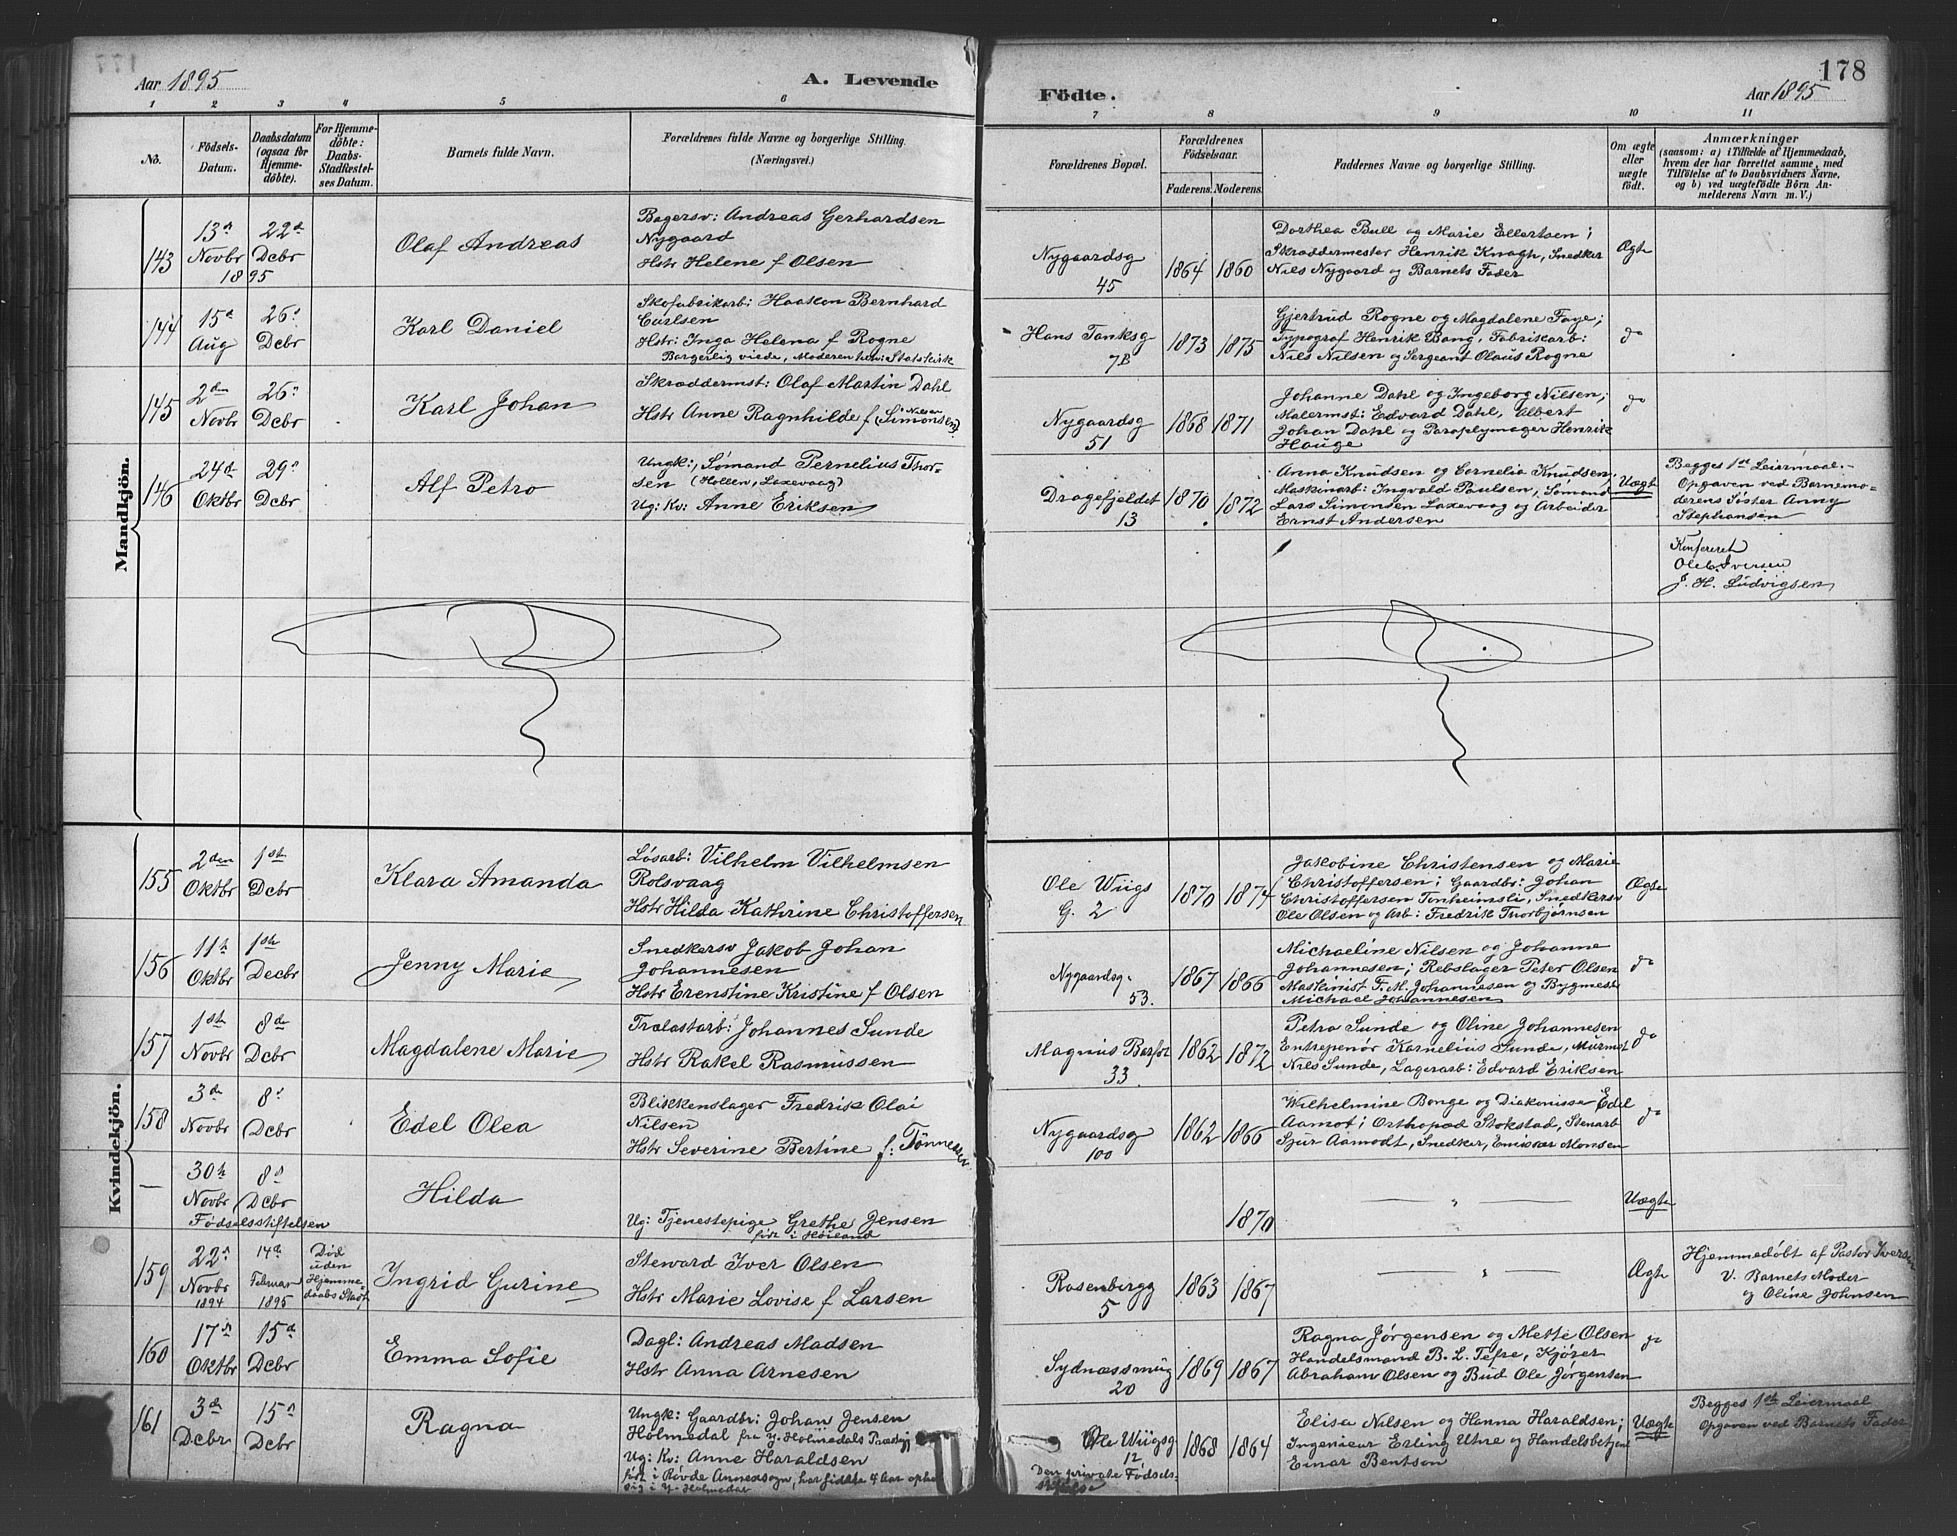 Aar 1895
A. Levende
Födte.
178
Aar 1895
1 2 3 4 5 6 7 8 9 10 11
No.
Födsels-
Datum.
Daabsdatum
(ogsaa for
Hjemme-
döbte).
For Hjemme-
döbte:
Daabs-
Stadfæstel-
ses Datum.
Barnets fulde Navn.
Forældrenes fulde Navne og borgerlige Stilling.
(Næringsvei.)
Forældrenes Bopæl.
Forældrenes
Födselsaar.
Faderens. Moderens.
Faddernes Navne og borgerlige Stilling.
Om ægte
eller
uægte
födt.
Anmærkninger
(saasom: a) i Tilfælde af Hjemmedaab,
hvem der har forrettet samme, med
Tilföielse af to Daabsvidners Navne,
og b) ved uægtefödte Börn An-
melderens Navn m. V.)
Mandkjön.
143
13d
Novbr
1895
22d
Dcbr
Olaf Andreas
Bagersv: Andreas Gerhardsen
Nygaard
Hstr Helene f Olsen
Nygaardsg
45
1864 1860
Dorthea Bull og Marie Ellertsen;
Skræddermester Henrik Knagh, Snedker
Niels Nygaard og Barnets Fader
Ægte
144
15d
Aug
26d
Dcbr
Karl Daniel
Skofabrikarb: Haakon Bernhard
Carlsen
Hstr: Inga Helena f Rogne
Borgerlig viede, Moderen hør: Statskirk
Hans Tanksg
7B
1873 1875
Gjertrud Rogne og Magdalene Faye;
Typograf Henrik Bang, Fabrikarb:
Nils Nilsen og Sergeant Olaus Rogne
do
145
2den
Novbr
26d
Dcbr
Karl Johan
Skræddermst: Olaf Martin Dahl
Hstr Anne Ragnhilde f (Simonsen) Nilsen
Nygaardsg
51
1868 1871
Johanne Dahl og Ingeborg Nilsen;
Malermst: Edvard Dahl, Albert
Johan Dahl og Paraplymager Henrik
Hauge
do
146
24d
Oktbr
29d
Dcbr
Alf Petro
Ungk:, Sømand Pernelius Thor-
sen (Hollen, Laxevaag)
Ug: Kv: Anne Eriksen
Dragefjeldet
13
1870 1872
Anna Knudsen og Cornelia Knudsen;
Maskinarb: Ingvald Paulsen, Sømand
Lars Simonsen Laxevaag og Arbeider
Ernst Andersen
Uægt
Begges 1st Leiermaal.
Opgaven ved Barnemo-
derens Søster Anny
Stephansen
Konfereret
Ole C. Iversen
J. H. Ludvigsen
Kvindekjön.
155
2den
Oktbr
1st
Dcbr
Klara Amanda
Løsarb: Vilhelm Vilhelmsen
Rolsvaag
Hstr Hilda Kathrine Christoffersen
Ole Wiigs
G. 2
1870 1874
Jakobine Christensen og Marie
Christoffersen; Gaardbr: Johan
Christoffersen Tonheimsli, Snedkersv
Ole Olsen og Arb: Fredrik Thorbjørnsen
Ægte
156
11th
Oktbr
1st
Decbr
Jenny Marie
Snedkersv Jakob Johan
Johannesen
Hstr Erenstine Kristine f Olsen
Nygaardsg.
53.
1867 1866
Michaeline Nilsen og Johanne
Johannesen; Rebslager Peter Olsen
Maskinist F. M. Johannesen og Bygmest
Michael Johannesen
do
157
1st
Novbr
8de
Dcbr
Magdalene Marie
Trælastarb: Johannes Sunde
Hstr Rakel Rasmussen
Magnus Barfot
33.
1862 1872
Petra Sunde og Oline Johannesen
Entrepenør Kornelius Sunde, Murmst
Nils Sunde, Lagerarb: Edvard Eriksen
do
158
3de
Novbr
8d
Dcbr
Edel Olea
Blikkenslager Fredrik Olai
Nilsen
Hstr Severine Bertine f: Tønnesen
Nygaardsg
100
1862 1866
Wilhelmine Bonge og Diakonisse Edel
Aamot; Orthopæd Stokstad, Stenarb
Sjur Aamodt, Snedker, Emissær Monsen
do
—
30th
Novbr
8d
Dcbr
Fødselsstiftelsen
Hilda
Ug: Tjenestepige Grethe Jensen
født i Høiland
1870
— " —
Uægte
159
22d
Novbr
1894
14d
Februar
1895
Død
uden
Hjemme
daabs Stadf
Ingrid Gurine
Steward Iver Olsen
Hstr Marie Lovise f Larsen
Rosenbergg
5
1863 1867
— " —
Ægte
Hjemmedøbt af Pastor Iversen
V. Barnets Moder
og Oline Johnsen
160
17d
Oktbr
15d
Dcbr
Emma Sofie
Dagl: Andreas Madsen
Hstr Anna Arnesen
Sydnæssmug
20
1869 1867
Ragna Jørgensen og Mette Olsen
Handelsmand B. L. Tefre, Kjører
Abraham Olsen og Bud Ole Jørgensen
do
161
3de
Dcbr
15d
Dcbr
Ragna
Ungk: Gaardbr: Johan Jensen
Holmedal fra Y. Holmedals Præstgj
Ug: Kv: Anne Haraldsen
født i Røvde Annexsogn, har sidste 4 Aar opho
sig i Y. Holmedal
Ole Wiigsg
12
Den private Fødsels-
1868 1864
Elisa Nilsen og Hanna Haraldsen;
Ingeniør Erling Utne og Handelsbetjent
Einar Bentson
Uægte
Begges 1st Leiermaal
Opgaven ved Barnets Fader